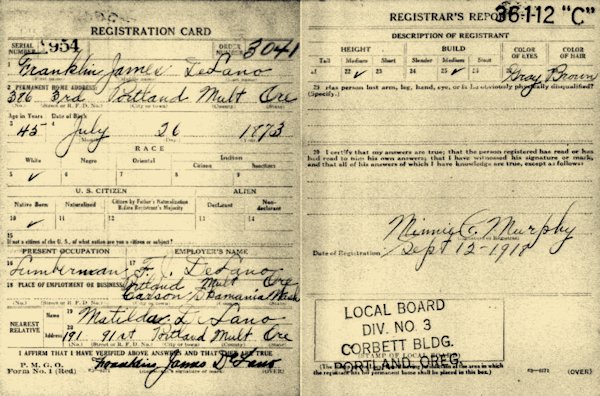 REGISTRATION CARD
SERIAL NUMBER 1954 ORDER NUMBER 3041
1 Franklin James DeLano
2 PERMANENT HOME ADDRESS:
386 3rd Portland Mult Ore
(No.) (Street or R. F. D. No.) (City or town) (County) (State)
Age in Years Date of Birth
3 45 4 July 26 1873
(Month.) (Day.) (Year.)
RACE
White Negro Oriental Indian
Citizen Noncitizen
5 ✓ 6 7 8 9
U. S. CITIZEN ALIEN
Native Born Naturalized Citizen by Father's Naturalization Before Registrant's Majority Declarant Non-declarant
10 ✓ 11 12 13 14
15 If not a citizen of the U. S., of what nation are you a citizen or subject?
PRESENT OCCUPATION EMPLOYER'S NAME
16 Lumberman 17 F. J. DeLano
18 PLACE OF EMPLOYMENT OR BUSINESS:
Portland Mult Ore
Carson Skamania Wash
(No.) (Street or R. F. D. No.) (City or town) (County) (State)
NEAREST RELATIVE Name 19 Matilda DeLano
Address 20 191 91st Portland Mult Ore
(No.) (Street or R. F. D. No.) (City or town) (County) (State)
I AFFIRM THAT I HAVE VERIFIED ABOVE ANSWERS AND THAT THEY ARE TRUE
P. M. G. O.
Form No. 1 (Red) Franklin James DeLano
(Registrant's signature or mark) (OVER)
REGISTRAR'S REPORT 36-1-12 "C"
DESCRIPTION OF REGISTRANT
HEIGHT BUILD COLOR OF EYES COLOR OF HAIR
Tall Medium Short Slender Medium Stout
21 22 ✓ 23 24 25 ✓ 26 27 Gray 28 Brown
29 Has person lost arm, leg, hand, eye, or is he obviously physically disqualified?
(Specify.)
30 I certify that my answers are true; that the person registered has read or has
had read to him his own answers; that I have witnessed his signature or mark,
and that all of his answers of which I have knowledge are true, except as follows:
Minnie C. Murphy
Date of Registration Sept 12-1918
LOCAL BOARD
DIV. NO. 3
CORBETT BLDG.
PORTLAND, OREG.
(STAMP OF LOCAL BOARD)
(The stamp of the Local Board having jurisdiction of the area in which
the registrant has his permanent home shall be placed in this box.)
(OVER)